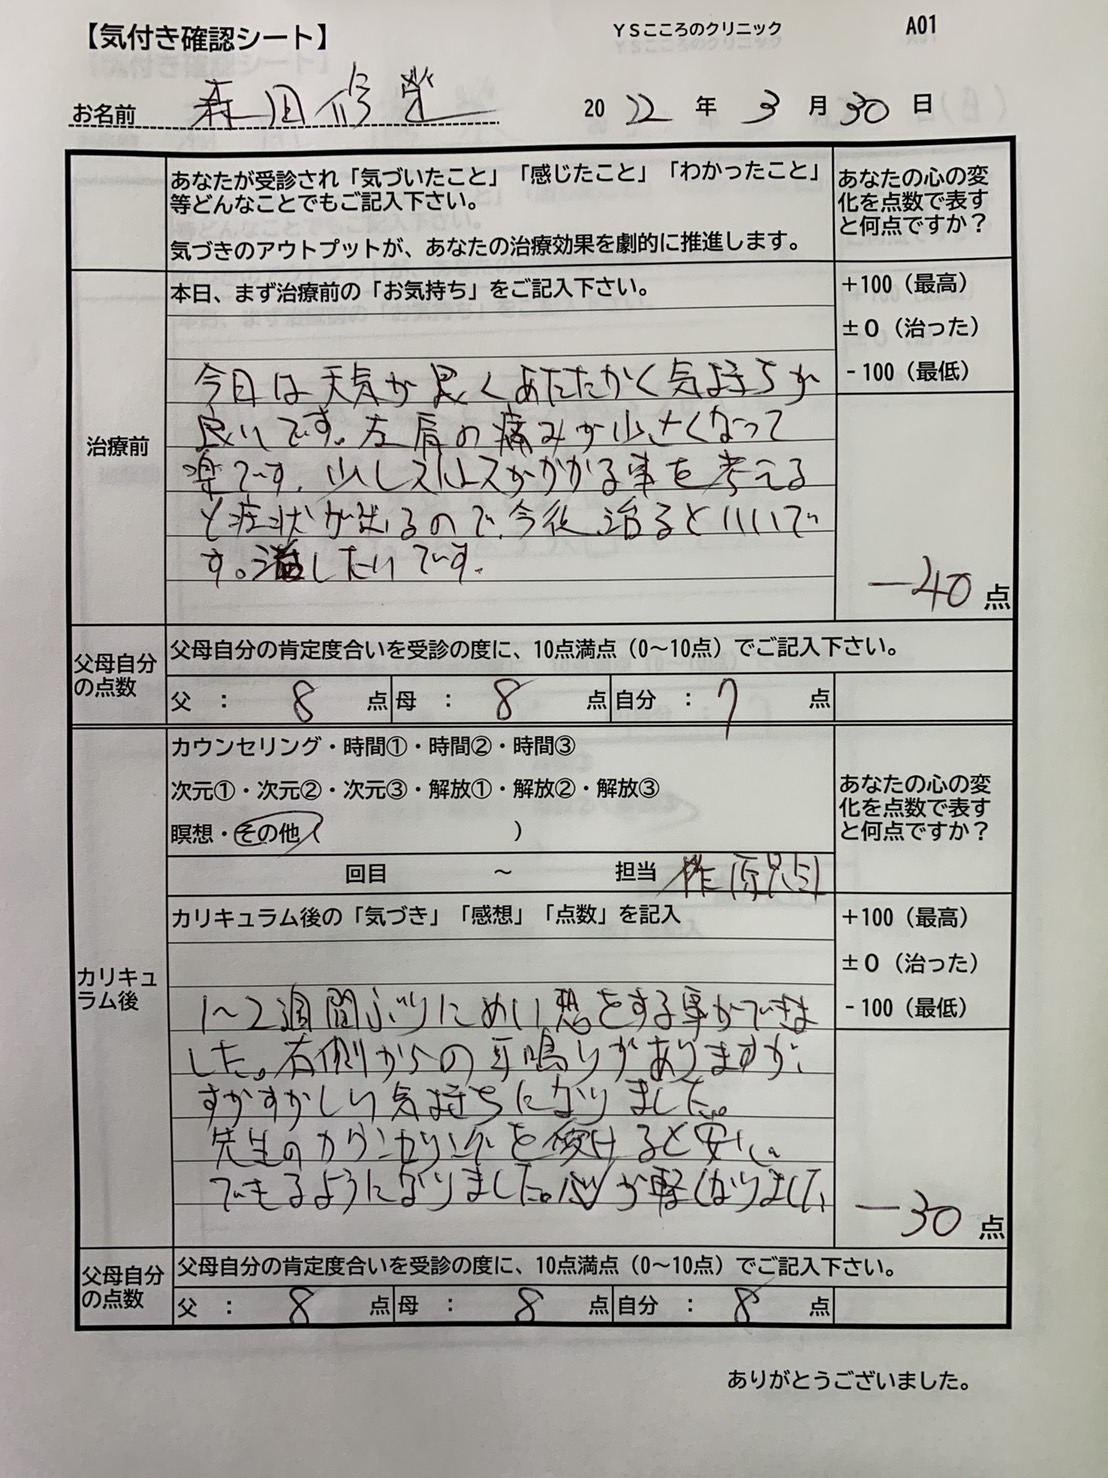 【気付き確認シート】
YSこころのクリニック
A01
お名前 森田修
2022年3月30日
あなたが受診され「気づいたこと」「感じたこと」「わかったこと」
等どんなことでもご記入下さい。
気づきのアウトプットが、あなたの治療効果を劇的に推進します。
あなたの心の変
化を点数で表す
と何点ですか？
治療前
本日、まず治療前の「お気持ち」をご記入下さい。
今日は天気が良くあたたかく気持ちが
良いです。左肩の痛みが小さくなって
楽です。少しストレスがかかる事を考える
と症状が出るので、今後、治るといいで
す。したいです。
+100（最高）
±0（治った）
-100（最低）
-40点
父母自分
の点数
父母自分の肯定度合いを受診の度に、10点満点（0～10点）でご記入下さい。
父 ： 8 点 母 ： 8 点 自分 ： 7 点
カウンセリング・時間①・時間②・時間③
次元①・次元②・次元③・解放①・解放②・解放③
瞑想・その他（ ）
回目 ～ 担当 原
あなたの心の変
化を点数で表す
と何点ですか？
カリキュ
ラム後
カリキュラム後の「気づき」「感想」「点数」を記入
1～2週間ぶりにめい想をする事ができま
した。右側からの耳鳴りがありますが、
すがすがしい気持ちになりました。
先生のカウンセリングを受けると安心
できるようになりました。心が軽くなりました
+100（最高）
±0（治った）
-100（最低）
-30点
父母自分
の点数
父母自分の肯定度合いを受診の度に、10点満点（0～10点）でご記入下さい。
父 ： 8 点 母 ： 8 点 自分 ： 8 点
ありがとうございました。